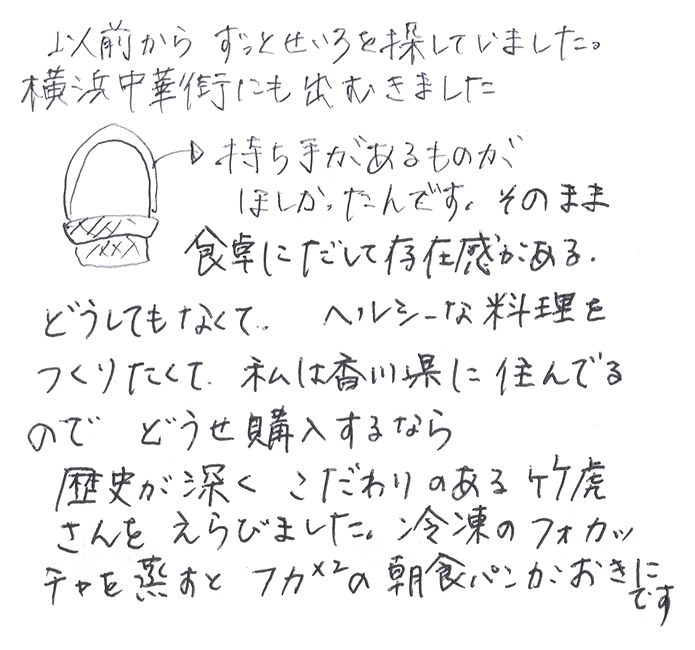 以前から ずっとせいろを探していました。
横浜中華街にも出むきました
持ち手があるものが
ほしかったんです。そのまま
食卓にだして存在感がある.
どうしてもなくて. ヘルシーな料理を
つくりたくて. 私は香川県に住んでる
ので どうせ購入するなら
歴史が深く こだわりのある竹虎
さんを えらびました。冷凍のフォカッ
チャを蒸すと フカ×2の朝食パンがおきに
です